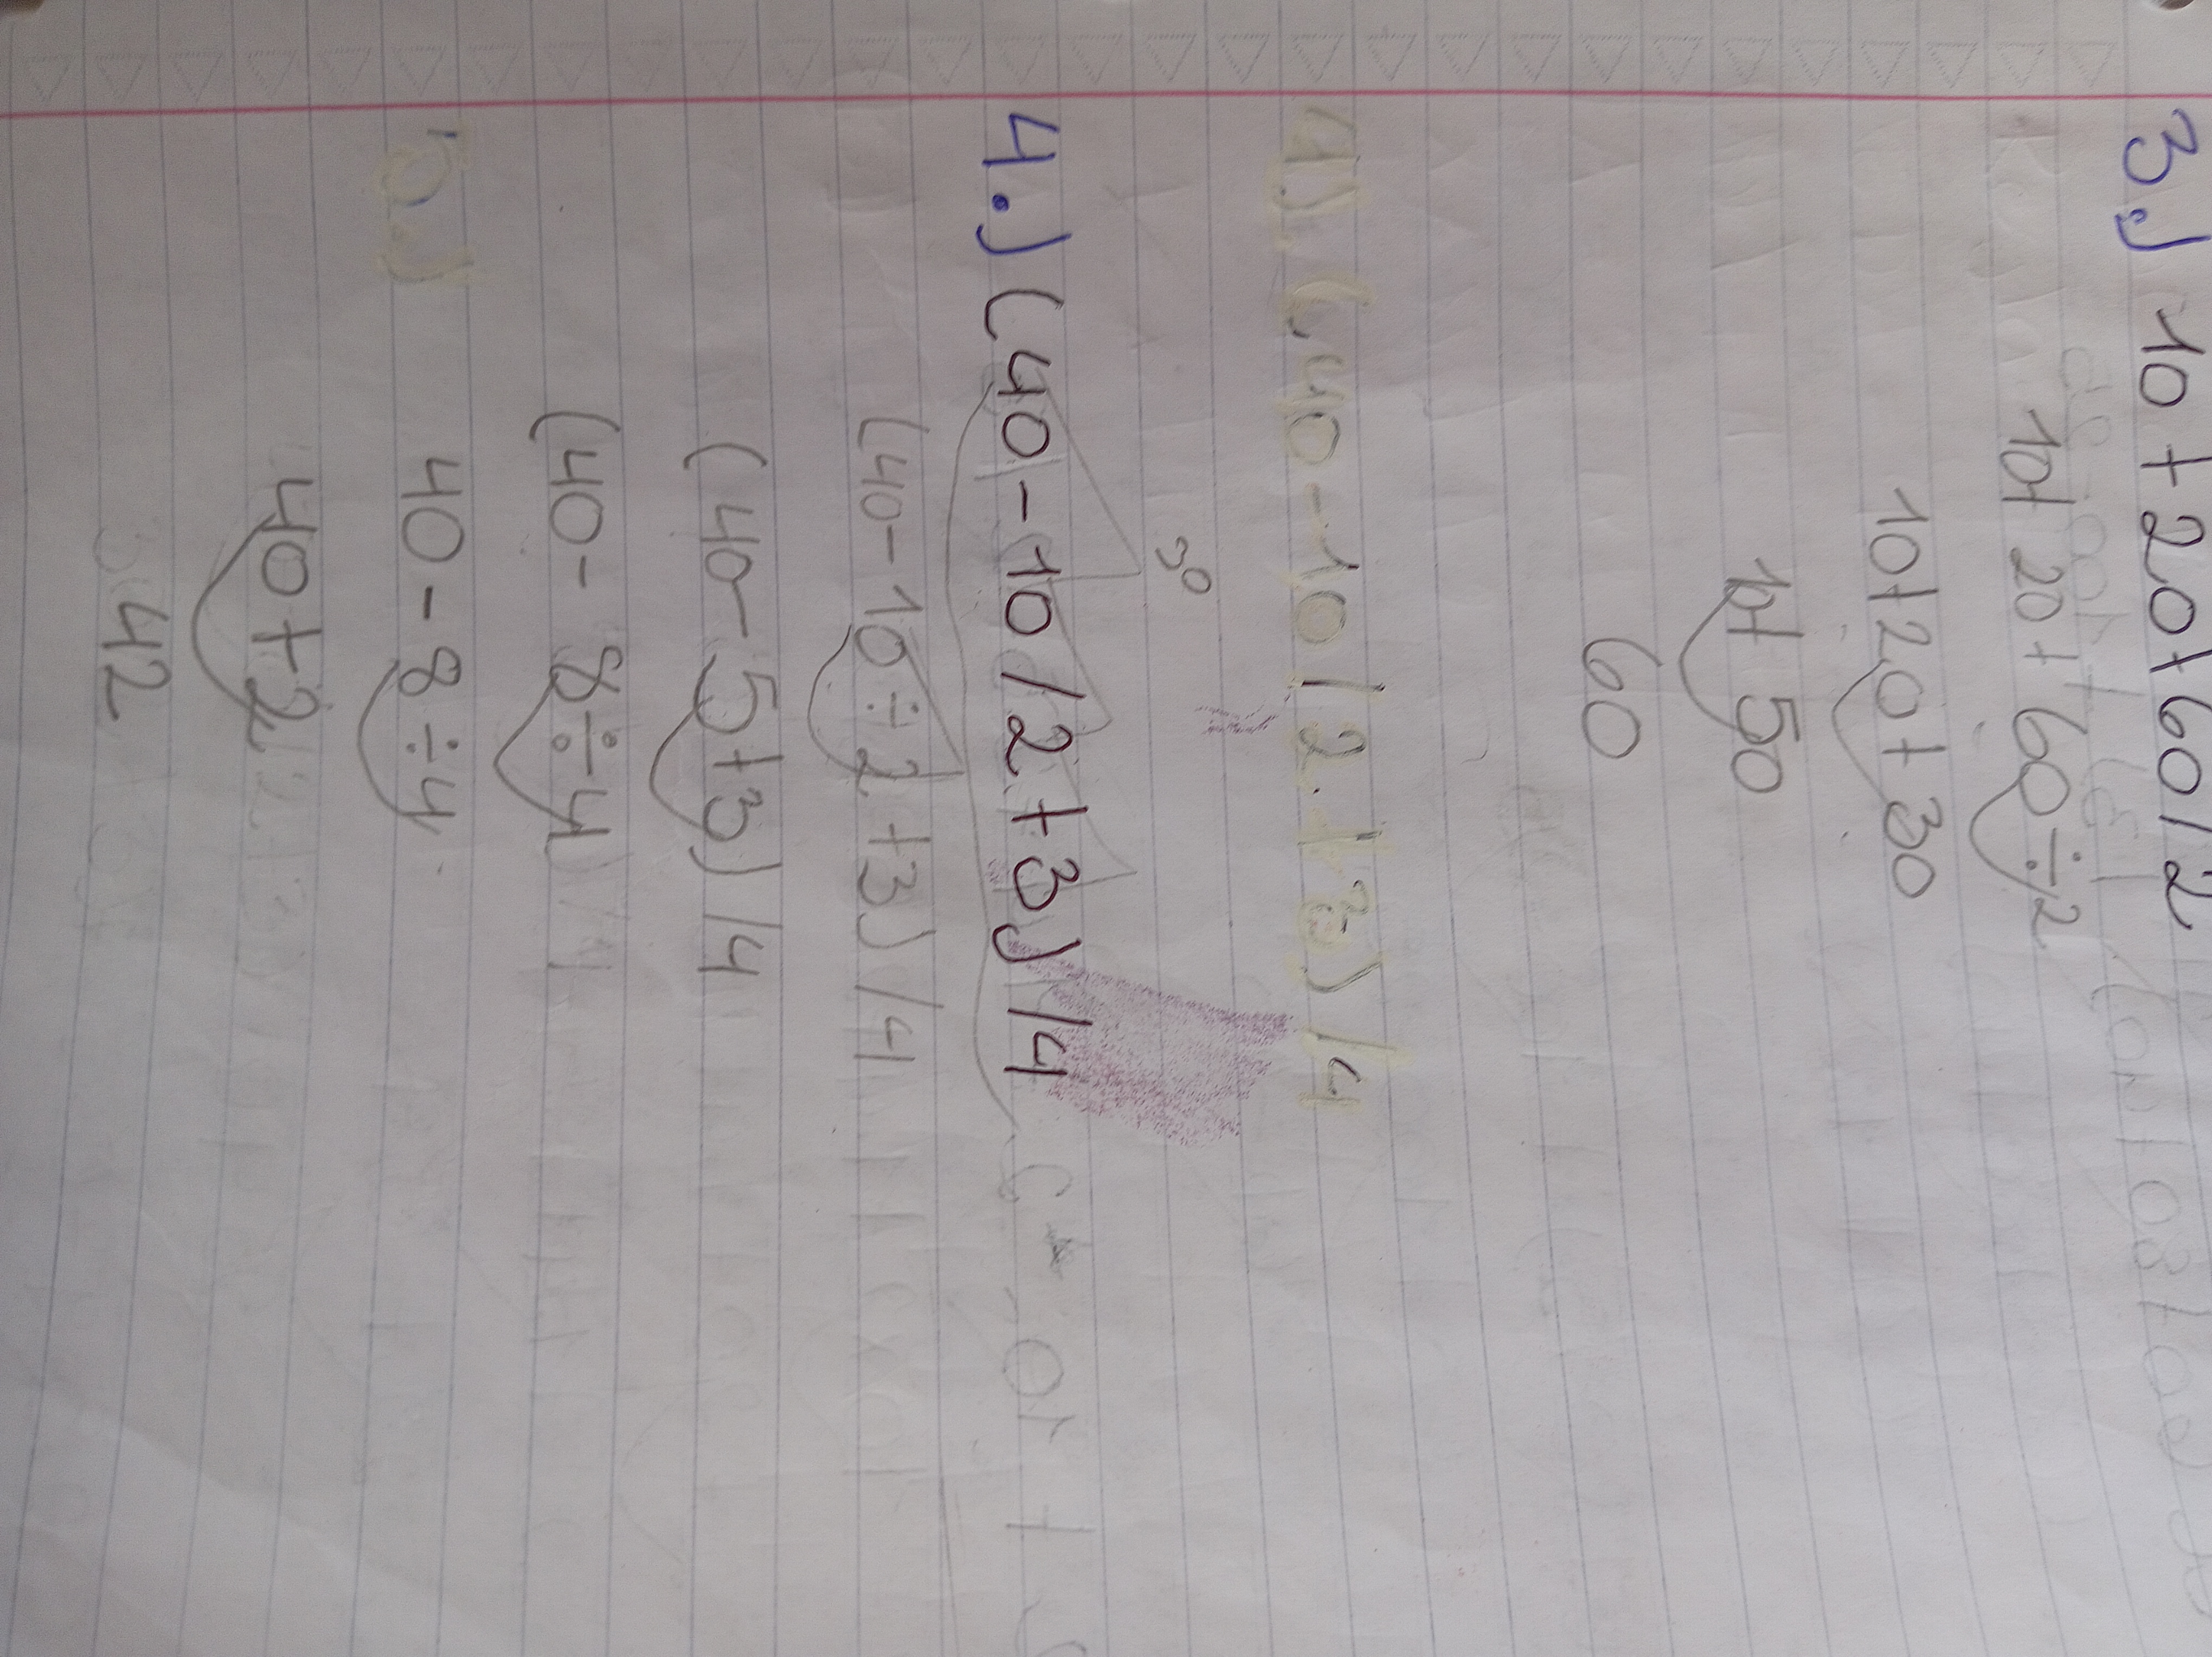 3.) 10 + 20 + 60 / 2
10 + 20 + 60 ÷ 2
10 + 20 + 30
10 + 50
60
4.) (40 - 10 / 2 + 3) / 4
30
4.) (40 - 10 / 2 + 3) / 4
(40 - 10 ÷ 2 + 3) / 4
(40 - 5 + 3) / 4
(40 - 8 ÷ 4
40 - 8 ÷ 4
40 + 2
42